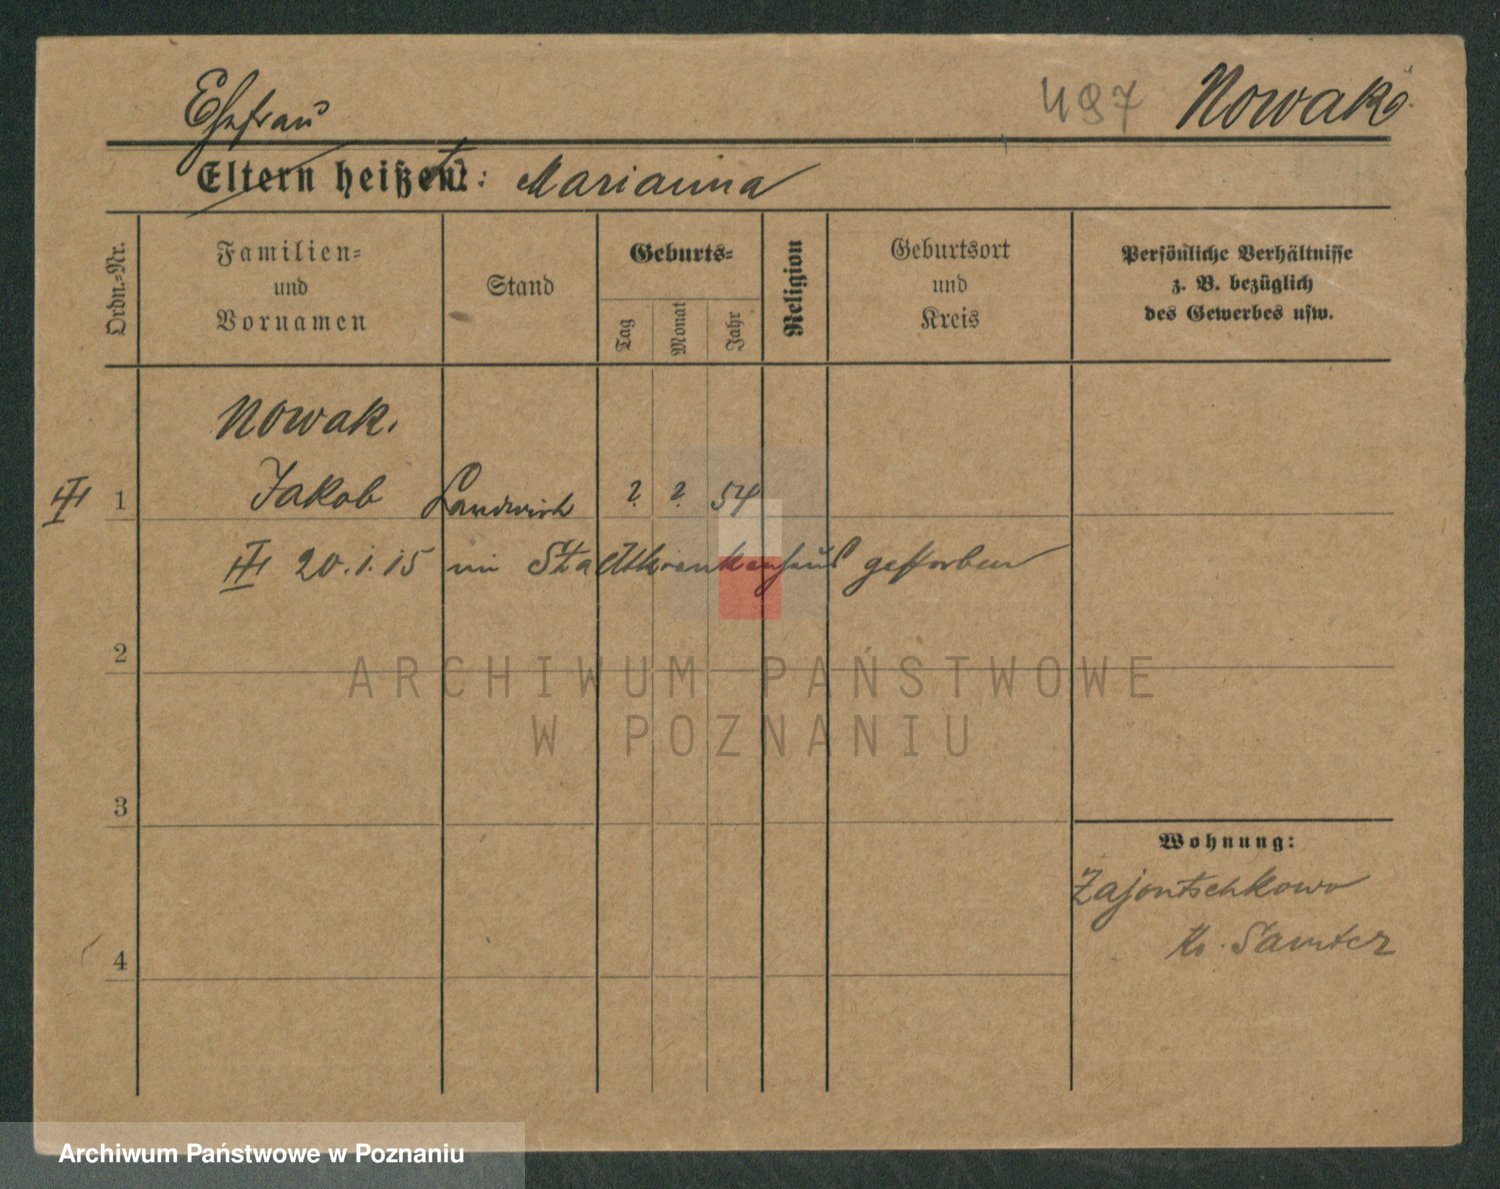 497 Nowak
Ehefrau
Eltern heißen: Marianna
Ordn.-Nr.
Familien-
und
Vornamen
Stand
Geburts-
Tag
Monat
Jahr
Religion
Geburtsort
und
Kreis
Persönliche Verhältnisse
z. B. bezüglich
des Gewerbes usw.
Nowak.
1 Jakob Landwirt ? ? 54
20.1.15 im Stadtkrankenhaus gestorben
2
3
4
Wohnung:
Zajontschkowo
Kr. Samter
ARCHIWUM PAŃSTWOWE
W POZNANIU
Archiwum Państwowe w Poznaniu